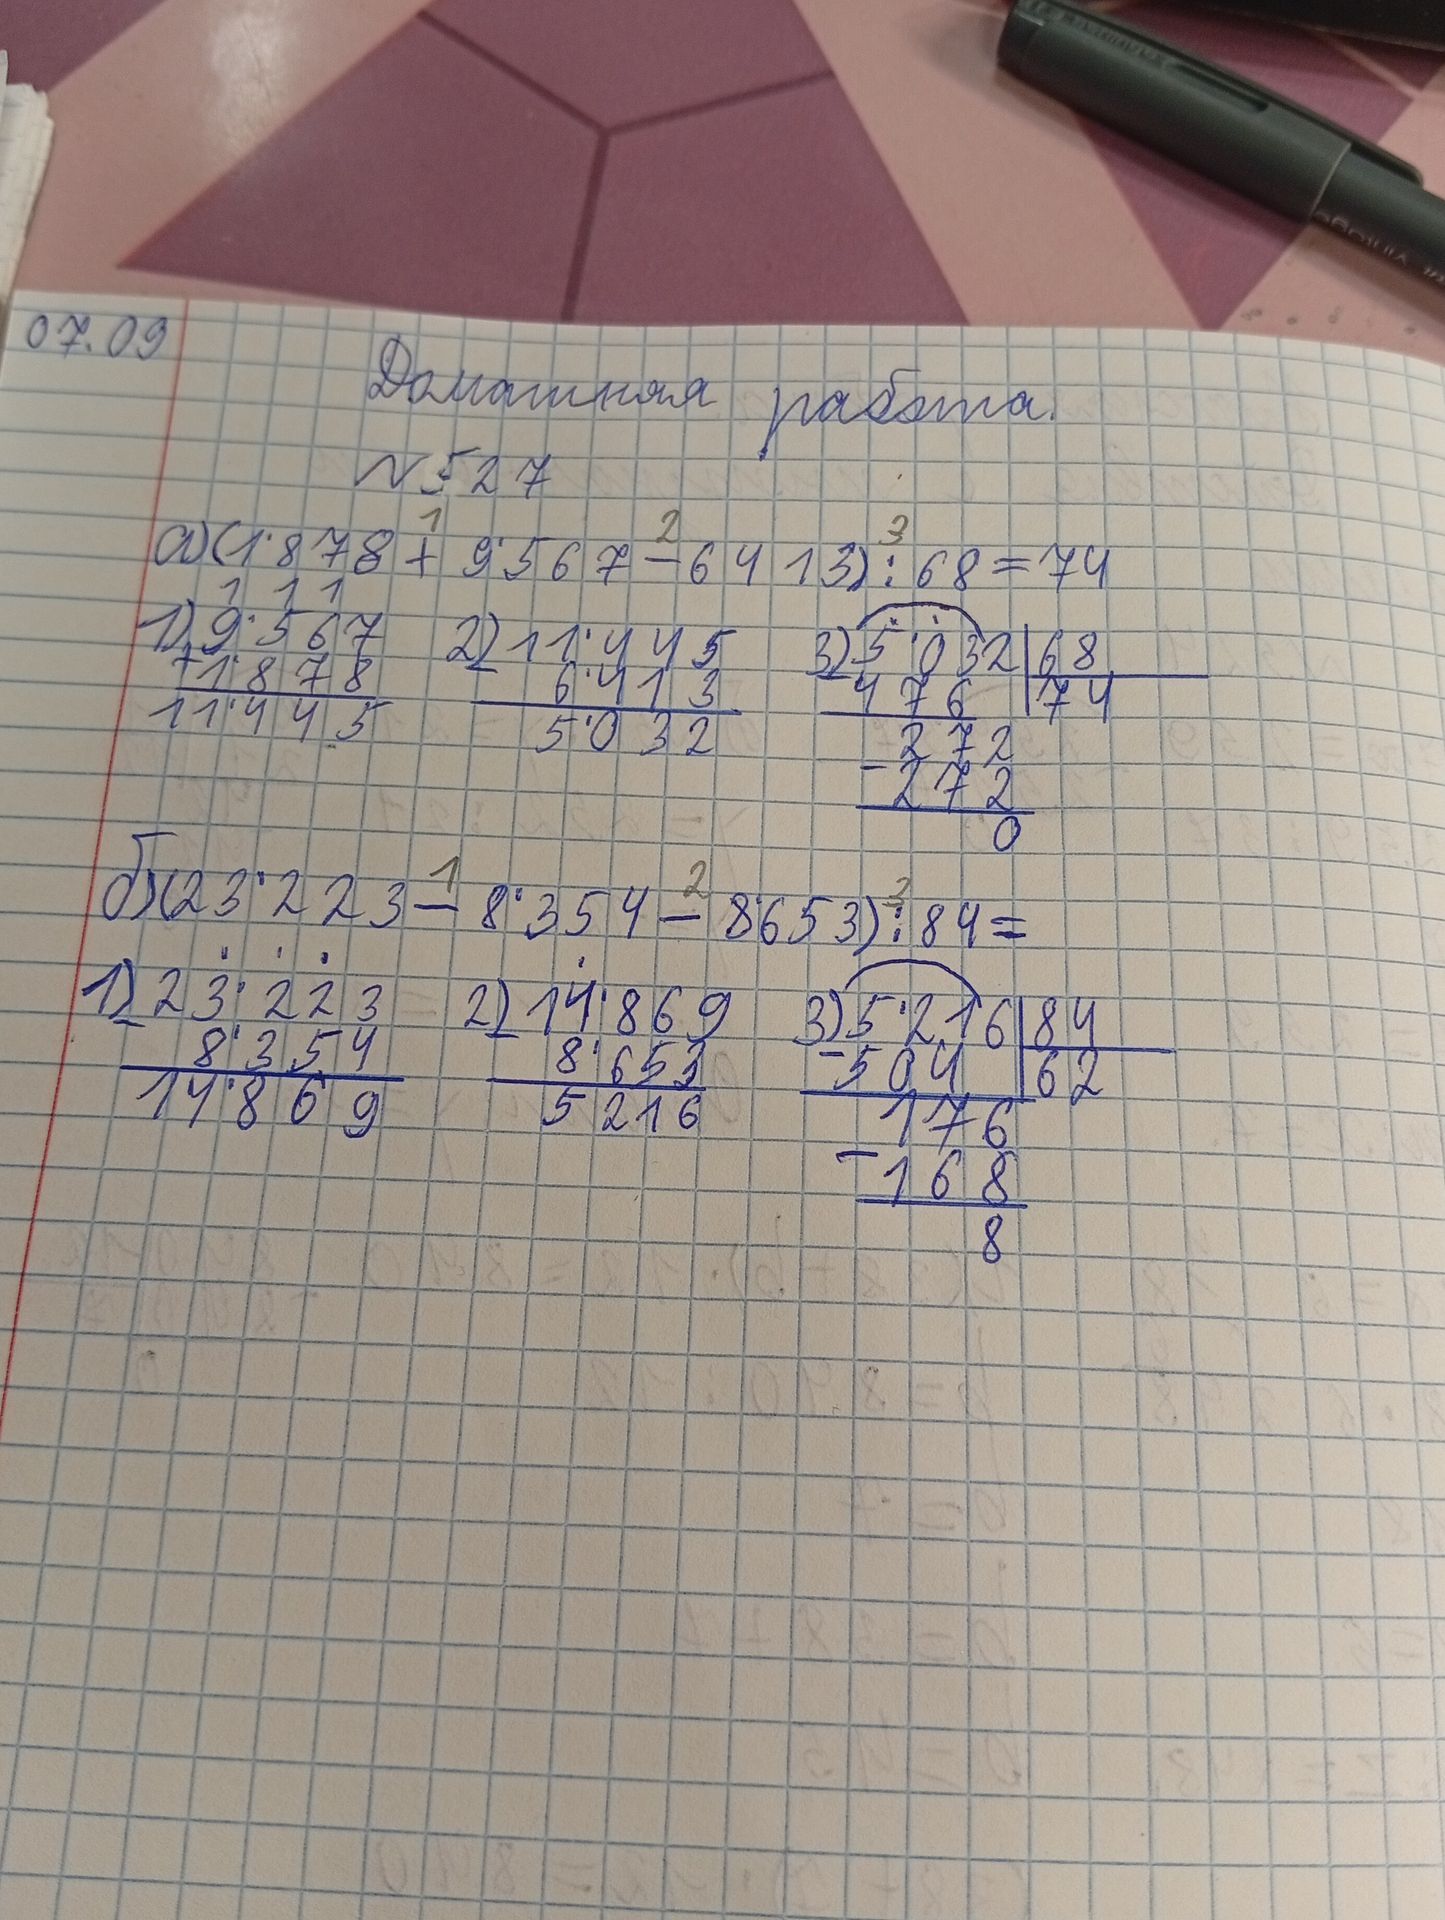 07.09
Домашняя работа.
N 527
а)(1˙878 + 9˙567 - 6413) : 68 = 74
1 2 3
1 1 1
1) 9˙567
+ 1˙878
11˙445
2) 11˙445
- 6˙413
5˙032
3) 5˙032 | 68
- 476 | 74
272
- 272
0
б)(23˙223 - 8˙354 - 8653) : 84 =
1 2 3
1) 23˙223
- 8˙354
14˙869
2) 14˙869
- 8˙653
5216
3) 5˙216 | 84
- 504 | 62
176
- 168
8